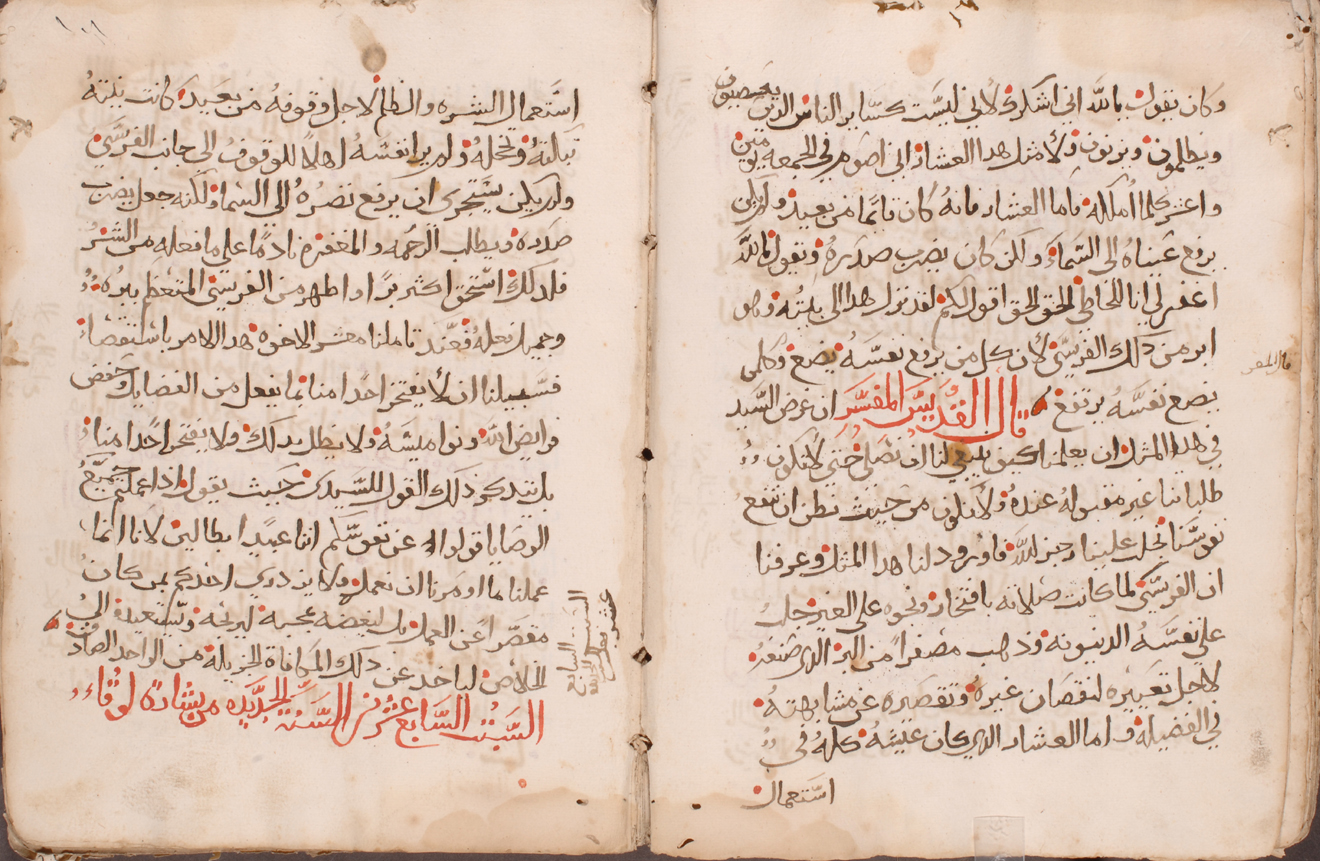 وكان يقول يالله اني اشكرك لاني ليست كساير الناس الدين يغصبون
ويظلمون ويزنون ولا متل هدا العشار اني اصوم في الجمعه يومين
واعشر كلما املكه فاما العشار فانه كان قايما من بعيد ولم يكن
يرفع عيناه الى السماء ولكن كان يضرب صدره ويقول يالله
اغفر لي انا الخاطي الحق الحق اقول لكم لقد نزل هدا الى بيته وهو
ابر من دلك الفريسي لان كل من يرفع نفسه يضع وكلمن
يضع نفسه يرتفع قال القديس المفسر ان غرض السيد
في هدا المتل ان يعلمنا كيف ينبغي لنا ان نصلي حتي لا تكون
طلباتنا غير مقبوله عنده ولا نكون من حيث نظن ان ننفع
نفوسنا نجلب علينا رجز الله فاورد لنا هدا المتل وعرفنا
ان الفريسي لما كانت صلاته بافتخار ونحوه على الغير جلب
على نفسه الدينونه ودهب مصفرا من البر الدي صنعه
لاجل تعييره لنقصان غيره وتقصيره عن مشابهته
في الفضيله واما العشار الدي كان عيشه كله في
استعمال
قال المفسر
استعمال الشره والظلم لاجل وقوفه من بعيد كانت نيته
تبكته وتخجله ولم يرا نفسه اهلا للوقوف الى جانب الفريسي
ولم يكن يستجري ان يرفع نضره الي السما ولكنه جعل يضرب
صدره ويطلب الرحمه والمغفره نادما على ما فعله من الشر
فلدلك استحق اكتر برا واطهر من الفريسي المتعظم ببره
وجميل فعله فعند تاملنا معشر الاخوه هدا الامر باستقصاء
فسبيلنا ان لا يفتخر احدا منا بما يفعل من الفضايل وحفض
فرايض الله ونواميسه ولا نظن بدلك ولا يفتخر احدا منا
بل نتدكر دلك القول السيدي حيث يقول ادا عملتم جميع
الوصايا قولوا عن نفوسكم اننا عبيدا بطالين لاننا انما
عملنا ما اومرنا ان نعمله ولا يزدري احدكم بمن كان
مقصرا عن العمل بل ليعضه بمحبة ليربحه ويستعيده الي
الخلاص لياخد عن دلك المكافاة الجزيله من الواحد الصادق
السبت السابع عشر من السنه الجديده من بشارة لوقا
السبت السابع
عشر